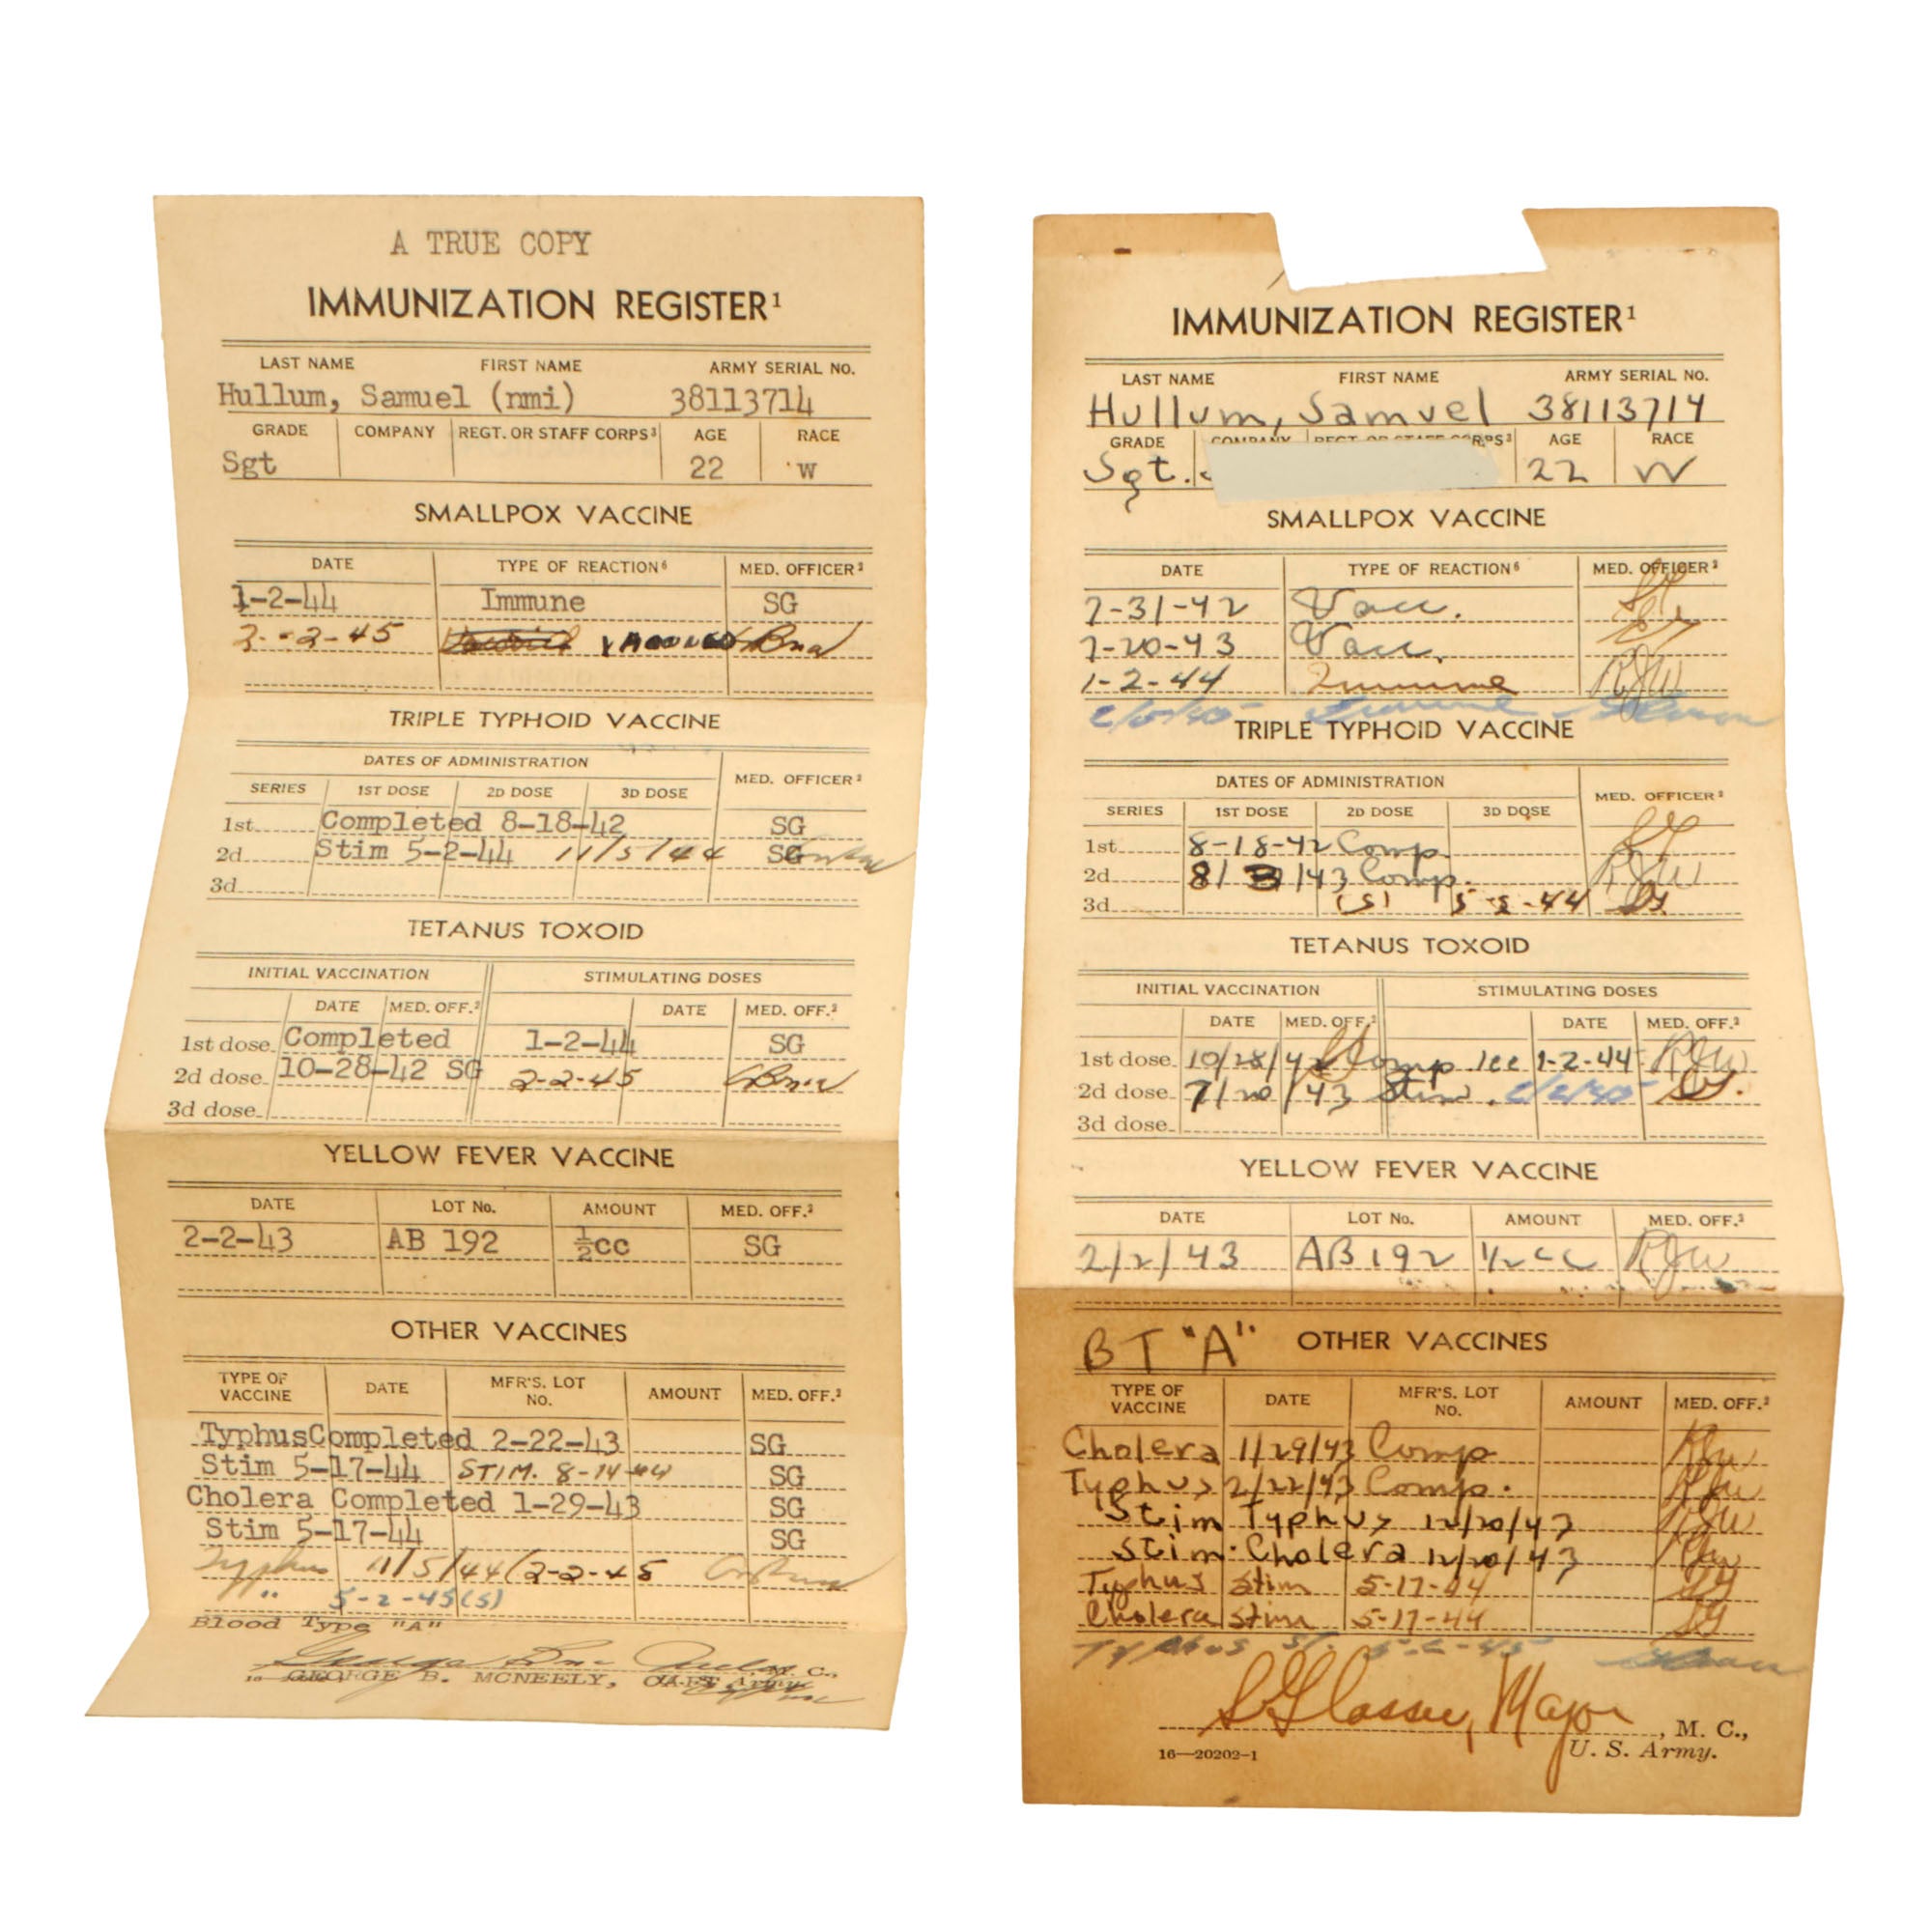 A TRUE COPY
IMMUNIZATION REGISTER¹
LAST NAME FIRST NAME ARMY SERIAL NO.
Hullum, Samuel (nmi) 38113714
GRADE COMPANY REGT. OR STAFF CORPS³ AGE RACE
Sgt 22 W
SMALLPOX VACCINE
DATE TYPE OF REACTION⁶ MED. OFFICER²
1-2-44 Immune SG
2-2-45
TRIPLE TYPHOID VACCINE
DATES OF ADMINISTRATION
MED. OFFICER²
SERIES 1ST DOSE 2D DOSE 3D DOSE
1st Completed 8-18-42 SG
2d Stim 5-2-44 11/5/44 SG
3d
TETANUS TOXOID
INITIAL VACCINATION STIMULATING DOSES
DATE MED. OFF.² DATE MED. OFF.²
1st dose Completed 1-2-44 SG
2d dose 10-28-42 SG 2-2-45
3d dose
YELLOW FEVER VACCINE
DATE LOT No. AMOUNT MED. OFF.²
2-2-43 AB 192 ½cc SG
OTHER VACCINES
TYPE OF VACCINE DATE MFR'S. LOT NO. AMOUNT MED. OFF.²
Typhus Completed 2-22-43 SG
Stim 5-17-44 STIM. 8-14-44 SG
Cholera Completed 1-29-43 SG
Stim 5-17-44 SG
Typhus 11/5/44 2-2-45
" 5-2-45(S)
Blood Type "A"
GEORGE B. MCNEELY, CAPT
M. C.,
IMMUNIZATION REGISTER¹
LAST NAME FIRST NAME ARMY SERIAL NO.
Hullum, Samuel 38113714
GRADE COMPANY REGT. OR STAFF CORPS³ AGE RACE
Sgt. 22 W
SMALLPOX VACCINE
DATE TYPE OF REACTION⁶ MED. OFFICER²
7-31-42 Vacc. SG
7-20-43 Vacc.
1-2-44 Immune RJW
Immune
TRIPLE TYPHOID VACCINE
DATES OF ADMINISTRATION
MED. OFFICER²
SERIES 1ST DOSE 2D DOSE 3D DOSE
1st 8-18-42 Comp. SG
2d 8/ /43 Comp. RJW
3d (S) 5-2-44 SG
TETANUS TOXOID
INITIAL VACCINATION STIMULATING DOSES
DATE MED. OFF.² DATE MED. OFF.²
1st dose 10/28/42 Comp 1cc 1-2-44 RJW
2d dose 7/20/43 Stim. SG.
3d dose
YELLOW FEVER VACCINE
DATE LOT No. AMOUNT MED. OFF.²
2/2/43 AB 192 1/2 cc RJW
BT "A" OTHER VACCINES
TYPE OF VACCINE DATE MFR'S. LOT NO. AMOUNT MED. OFF.²
Cholera 1/29/43 Comp RJW
Typhus 2/22/43 Comp. RJW
Stim Typhus 12/20/43 RJW
Stim. Cholera 12/20/43 RJW
Typhus Stim 5-17-44 SG
Cholera Stim 5-17-44 SG
Typhus St. 5-2-45
S Glasser, Major, M. C.,
16—20202-1 U. S. Army.